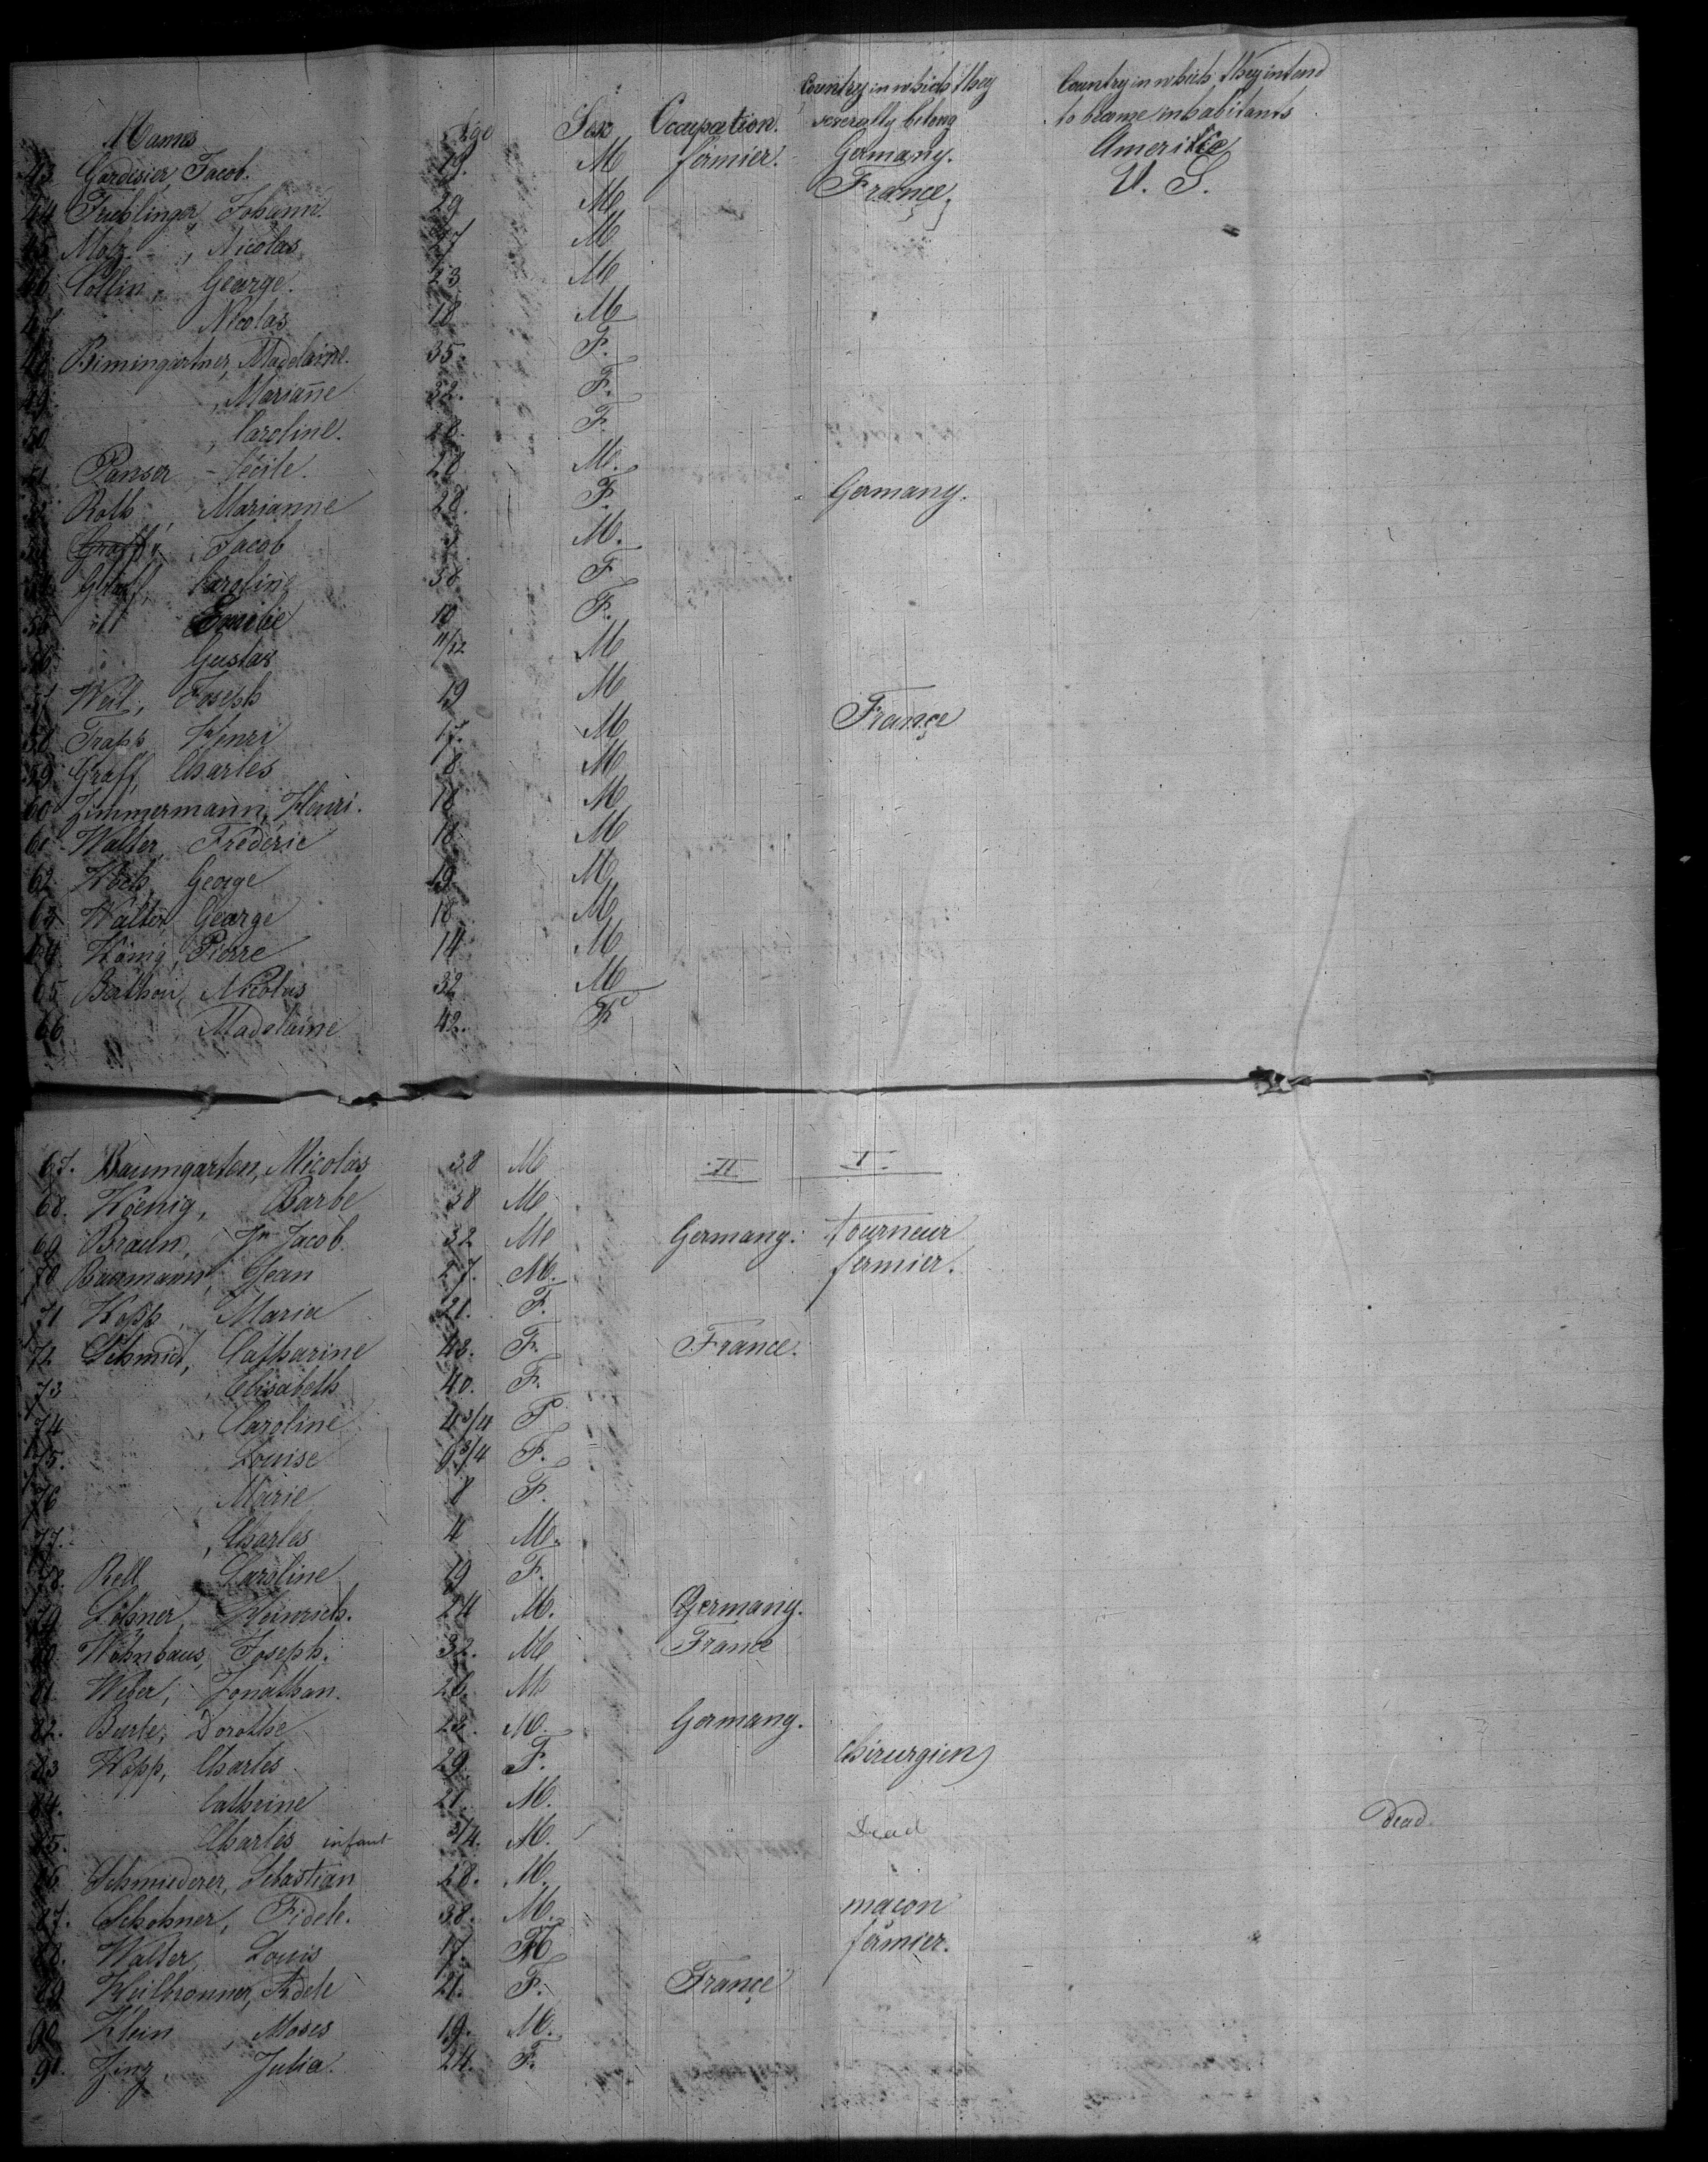 Names Age Sex Occupation. Country in which they severally belong Country in which they intend to become inhabitants
43 Gardesier, Jacob. 19. M fermier. Germany. America
44 Fruhlinger, Johann. 29 M France. U. S.
45 Motz, Nicolas 27 M
46 Collin, George. 23 M
47 " Nicolas 18 M
48 Bimingartner, Madelaine. 35. F.
49. , Marianne 32. F.
50 , Caroline. 28. F.
51 Panser - Cécile. 28 M.
52 Roth, Marianne 28. F. Germany.
53 Graff, Jacob M.
54 Graff, Caroline 38 F
55 " Emilie 10 F.
56 " Gustav 11/12 M
57 Weil, Joseph 19 M
58 Trapp Henri 17. M France
59 Graff, Charles 18. M
60 Zimmermann, Henri. 18 M
61 Walter, Frédéric 18. M
62 Koch, George 19 M
63 Walter, George 18 M
64 König, Pierre 14 M
65 Berthon, Nicolus 32 M
66 Madelaine 42. F
67. Baumgarten, Nicolas 38 M II I.
68. Koenig, Barbe 38 M
69 Braun, Jn Jacob. 32 M Germany. tourneur
70 Baumann, Jean 27. M. fermier.
71 Kopp, Maria 21. F.
72 Schmidt, Catharine 43. F. France.
73 , Elisabeth 40. F.
74 , Caroline 4 3/4 F
75. Louise 9 3/4 F.
76 , Marie 8 F.
77. , Charles 4 M.
78. Rell Caroline 19 F.
79 Lohner Heinrich. 24 M. Germany.
80 Wohnhaus, Joseph. 32. M France
81. Weber, Jonathan. 26. M
82. Burte, Dorothe 23. M. Germany.
83 Kopp, Charles 29. F. Chirurgien
84. Cathrine 21. M.
85. Charles infant 3/4. M. Dead Dead
86 Schmiederer, Sebastian 28. M.
87. Schohner, Fidele. 38. M. macon
88. Walter, Louis 17. M fermier.
89 Heilbronner, Adele 21. F. France
90 Klein, Moses 19. M.
91. Zinz, Julia. 24. F.